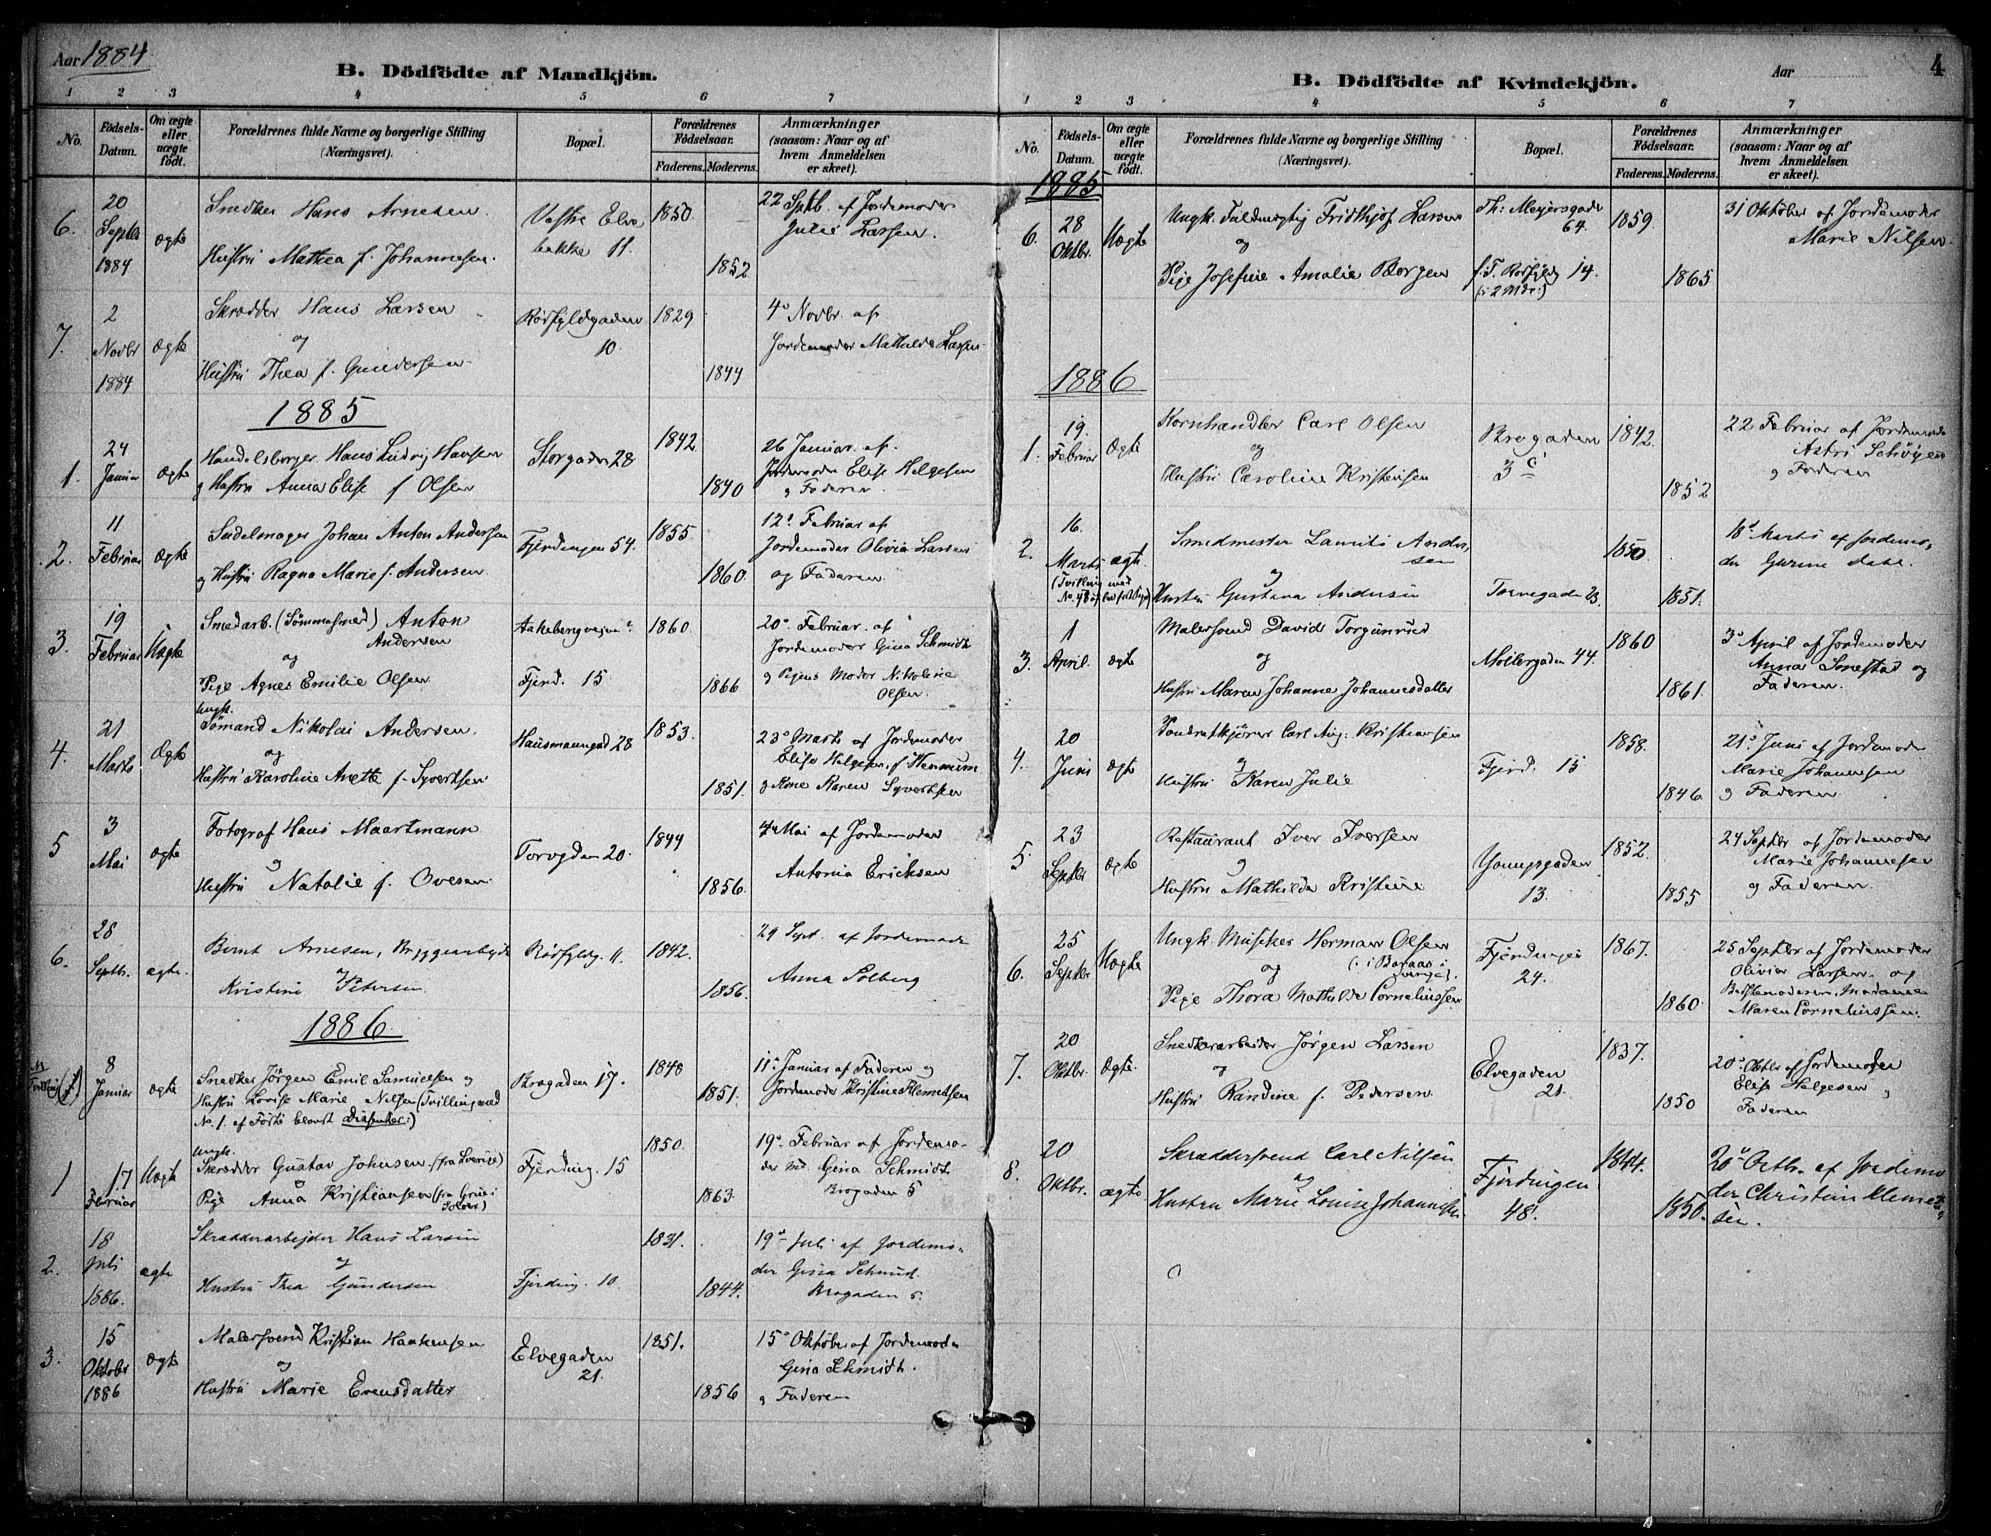 Aar 1884
B. Dödfödte af Mandkjön.
1 2 3 4 5 6 7
No. Födsels-Datum. Om ægte eller uægte födt. Forældrenes fulde Navne og borgerlige Stilling (Næringsvei). Bopæl. Forældrenes Födselsaar. Faderens. Moderens. Anmærkninger (saasom: Naar og af hvem Anmeldelsen er skeet).
6. 20 Septbr 1884 Ægte Snedker Hans Arnesen. Vestre Elvebakke 11. 1850. 22 Septb. af Jordemoder Julie Larsen.
Hustru Mathea f. Johannesen. 1852
7. 2 Novbr 1884 Ægte Skrædder Hans Larsen Rørfyldgaden 10. 1829 4de Novbr. af
og
Hustru Thea f. Gundersen 1844 Jordemoder Mathilde Larsen
1885
1. 24 Januar Ægte Handelsborger Hans Ludvig Hansen Storgaden 28 1842. 26 Januar af
og Hustru Anna Elise f Olsen 1840 Jordemoder Elise Helgesen og Faderen
2. 11 Februar Ægte Sadelmager Johan Anton Andersen Fjerdingen 54. 1855 12te Februar af
og Hustru Ragna Marie f. Andersen 1860. Jordemoder Olivia Larsen og Faderen
3. 19 Februar Uægte Smedarb. (Sömmasmed) Anton Andersen Aakebergveien 1860. 20de Februar af
og
Pige Agnes Emilie Olsen Fjerd. 15 1866 Jordemoder Gina Schmidt og Pigens Moder Nikoline Olsen.
4. 21 Marts Ægte Ungk. Sömand Nikolai Andersen Hausmannsgd 28 1853. 23de Marts af Jordemoder
og
Hustru Karoline Anette f. Syvertsen 1851. Elise Helgesen, f. Hennum og Kone Karen Syvertsen
5 3 Mai Ægte Fotograf Hans Maartmann Torvgden 20. 1844 4de Mai af Jordemoder
og
Hustru Natalie f. Ovesen 1856. Antonia Ericksen
6. 28 Septbr. ægte. Bernt Arnesen, Bryggearbejder Rörfyldg. 11. 1842. 29 Sept. af Jordemoder
og
Kristine Petersen. 1856. Anna Solberg
1886
Tvilling 8 Januar Ægte Snedker Jörgen Emil Samuelsen og Brogaden 17. 1848 11te Januar af Faderen og
Hustru Lovise Marie Nilsen (Tvilling med 1851. Jordemoder Kristine Klemetsen
No. 1. af Födte blandt Dissenter:)
1 17 Februar Uægte Ungk. Skrædder Gustav Johnsen (fra Sverige) Fjerding. 15 1850. 19de Februar af Jordemo-
og
Pige Anna Kristiansen (fra Grue i Solör) 1863. der Gina Schmidt Brogaden 5
2. 18 Juli 1886. ægte Skrædderarbejder Hans Larsen 1831. 19de Juli af Jordemo-
og
Hustru Thea Gundersen Fjerding. 10. 1844. der Gina Schmidt Brogaden 5.
3. 15 Oktober 1886 Ægte Malersvend Kristian Haakensen Elvegaden 21. 1851. 15de Oktober af Jordemoder
og
Hustru Marie Evensdatter 1856 Gina Schmidt. og Faderen
B. Dödfödte af Kvindekjön.
Aar 4
1 2 3 4 5 6 7
No. Födsels-Datum. Om ægte eller uægte födt. Forældrenes fulde Navne og borgerlige Stilling (Næringsvei). Bopæl. Forældrenes Födselsaar. Faderens. Moderens. Anmærkninger (saasom: Naar og af hvem Anmeldelsen er skeet).
1885
6. 28 Oktbr. Uægte Ungk. Fuldmægtig Fridthjof Larsen Th: Meyersgade 64. 1859. 31 Oktober af Jordemoder
og
Pige Josefine Amalie Borgen f. T. Rörfyldg 14. (i 2 Mdr:) 1865 Marie Nilsen.
1886
1. 19. Februar Ægte Kornhandler Carl Olsen Brogaden 3 c 1842. 22 Februar af Jordemoder
og
Hustru Caroline Kristensen 1852 Astri Schöyen og Faderen
2. 16. Marts ægte. Smedmester Laurits Andersen 1850. 18de Marts af Jordemo-
(Tvilling med No. 48 af levende födte Piger)
og
Hustru Gustava Andersen Torvegaden 23. 1851. der Gurine
3. 1 April. Ægte Malersvend David Torgunrud Möllergaden 44. 1860 3de April af Jordemoder
og
Hustru Maren Johanne Johannesdatter 1861. Anna Smestad og Faderen.
4. 20 Juni Ægte Vandratkjörer Carl Aug: Kristiansen Fjerd. 15 1858. 21de Juni af Jordemoder
og
Hustru Karen Julie 1846. Marie Johannesen og Faderen.
5. 23 Septbr Ægte Restaurant Iver Iversen Youngsgaden 13. 1852. 24 Septbr af Jordemoder
og
Hustru Mathilde Kristine 1855 Marie Johannesen og Faderen.
6. 25 Septbr Uægte Ungk. Musiker Herman Olsen (: i Boraas i Sverige). Fjerdingen 24. 1867. 25 Septbr af Jordemoder
og
Pige Thora Mathilde Corneliussen 1860. Olivia Larsen og Bedstemoderen, Madame Maren Corneliussen.
7. 20 Oktbr. Ægte. Snedkerarbeider Jörgen Larsen Elvegaden 21. 1837. 20de Oktbr af Jordemoder
og
Hustru Randine f. Pedersen 1850 Elise Helgesen og Faderen
8. 20 Oktbr. ægte Skræddersvend Carl Nilsen Fjerdingen 48. 1844. 20de Octbr. af Jordemo-
og
Hustru Marie Louise Johannessen. 1850. der Christine Klemetsen.